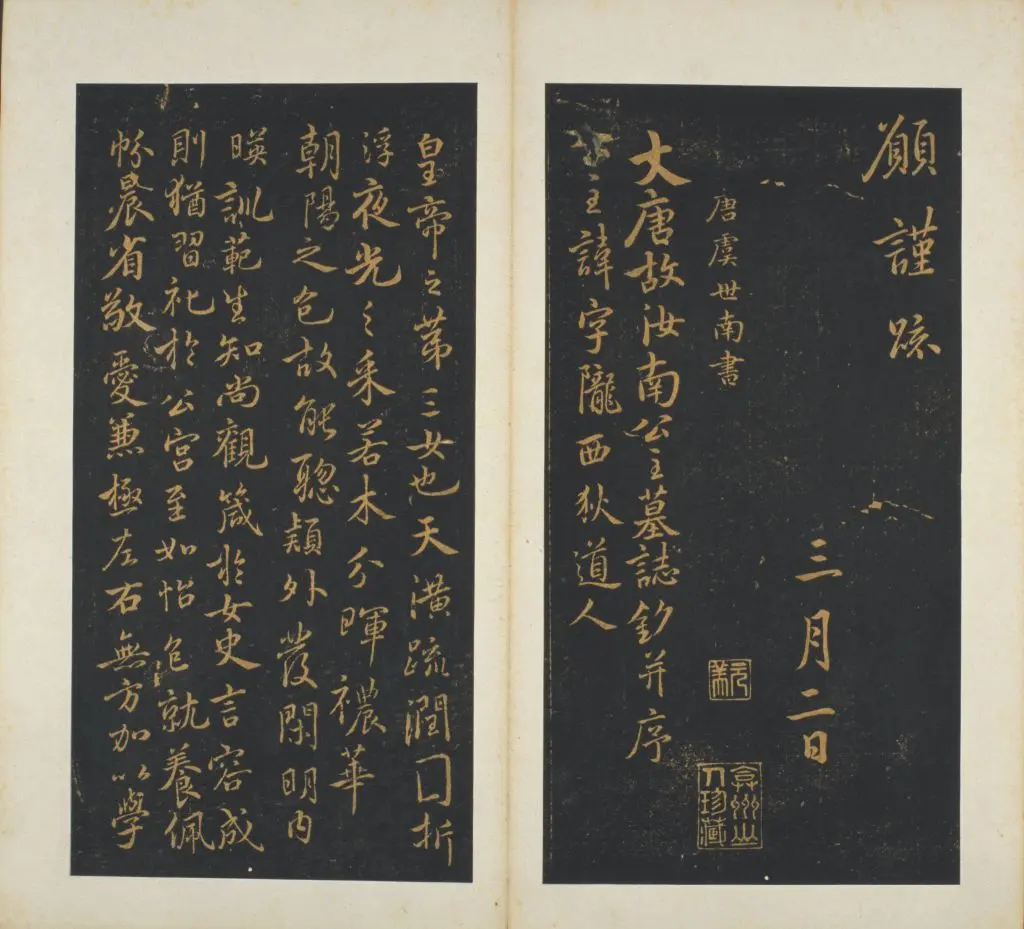 願謹疏
三月二日
唐虞世南書
大唐故汝南公主墓誌銘并序
公主諱字隴西狄道人
皇帝之第三女也天潢疏潤圓折
浮夜光之采若木分暉穠華
朝陽之色故能聰穎外發閑明內
暎訓範生知尚觀箴於女史言容成
則猶習礼於公宮至如怡色就養佩
帉晨省敬愛兼極左右無方加以學